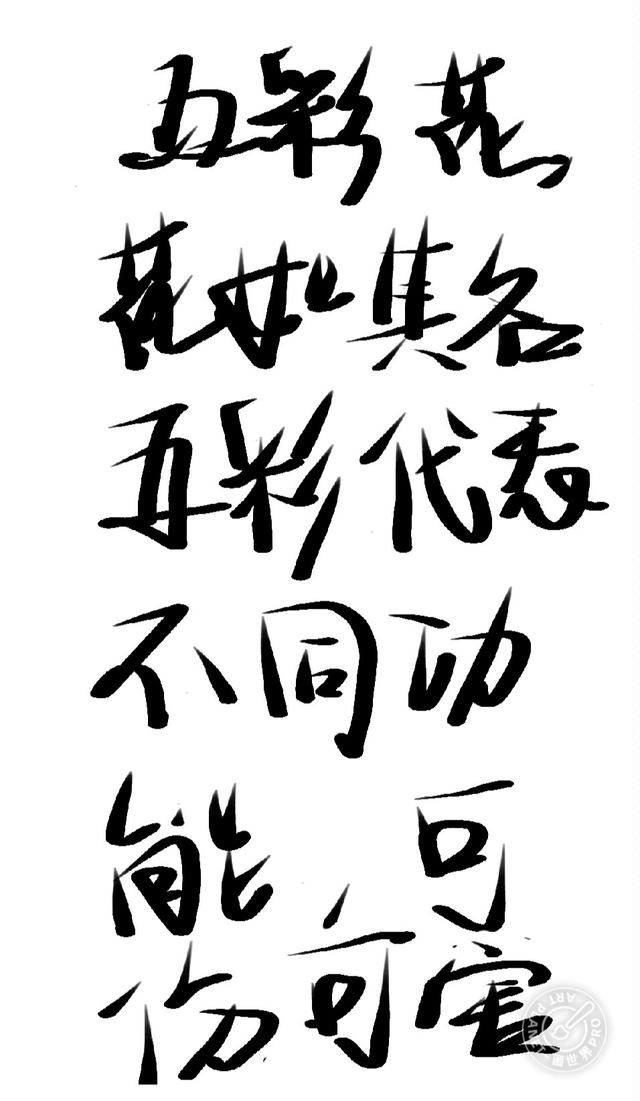 五彩花
花如其名
五彩代表
不同功
能 可
伤可
畫世界PRO